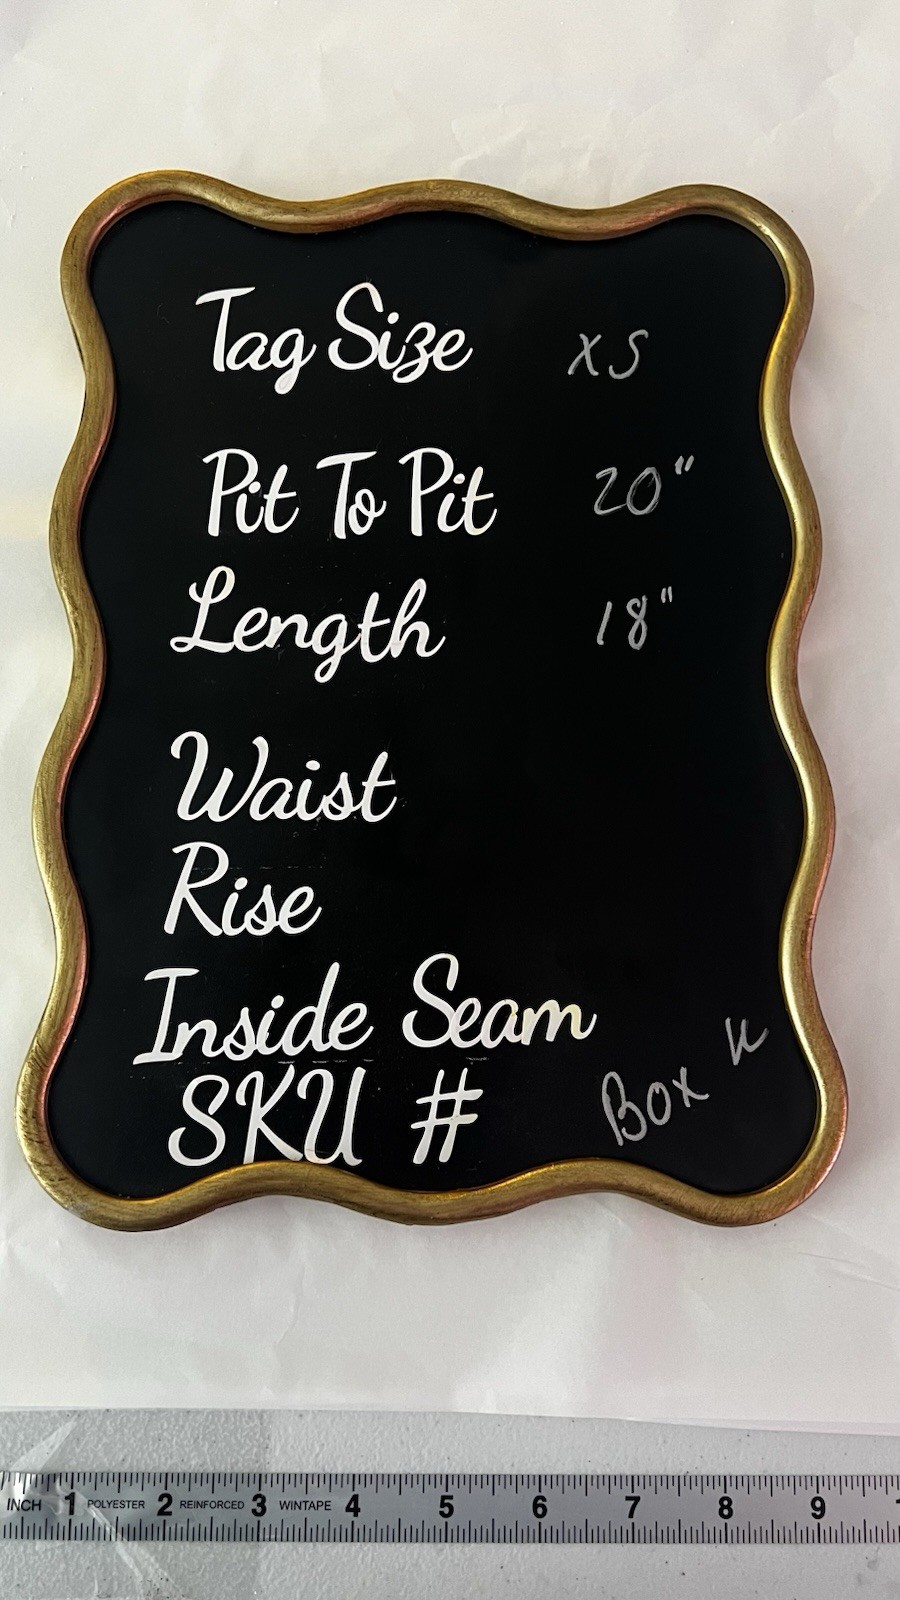 Tag Size XS
Pit To Pit 20"
Length 18"
Waist
Rise
Inside Seam
SKU # Box
INCH 1 POLYESTER 2 REINFORCED 3 WINTAPE 4 5 6 7 8 9